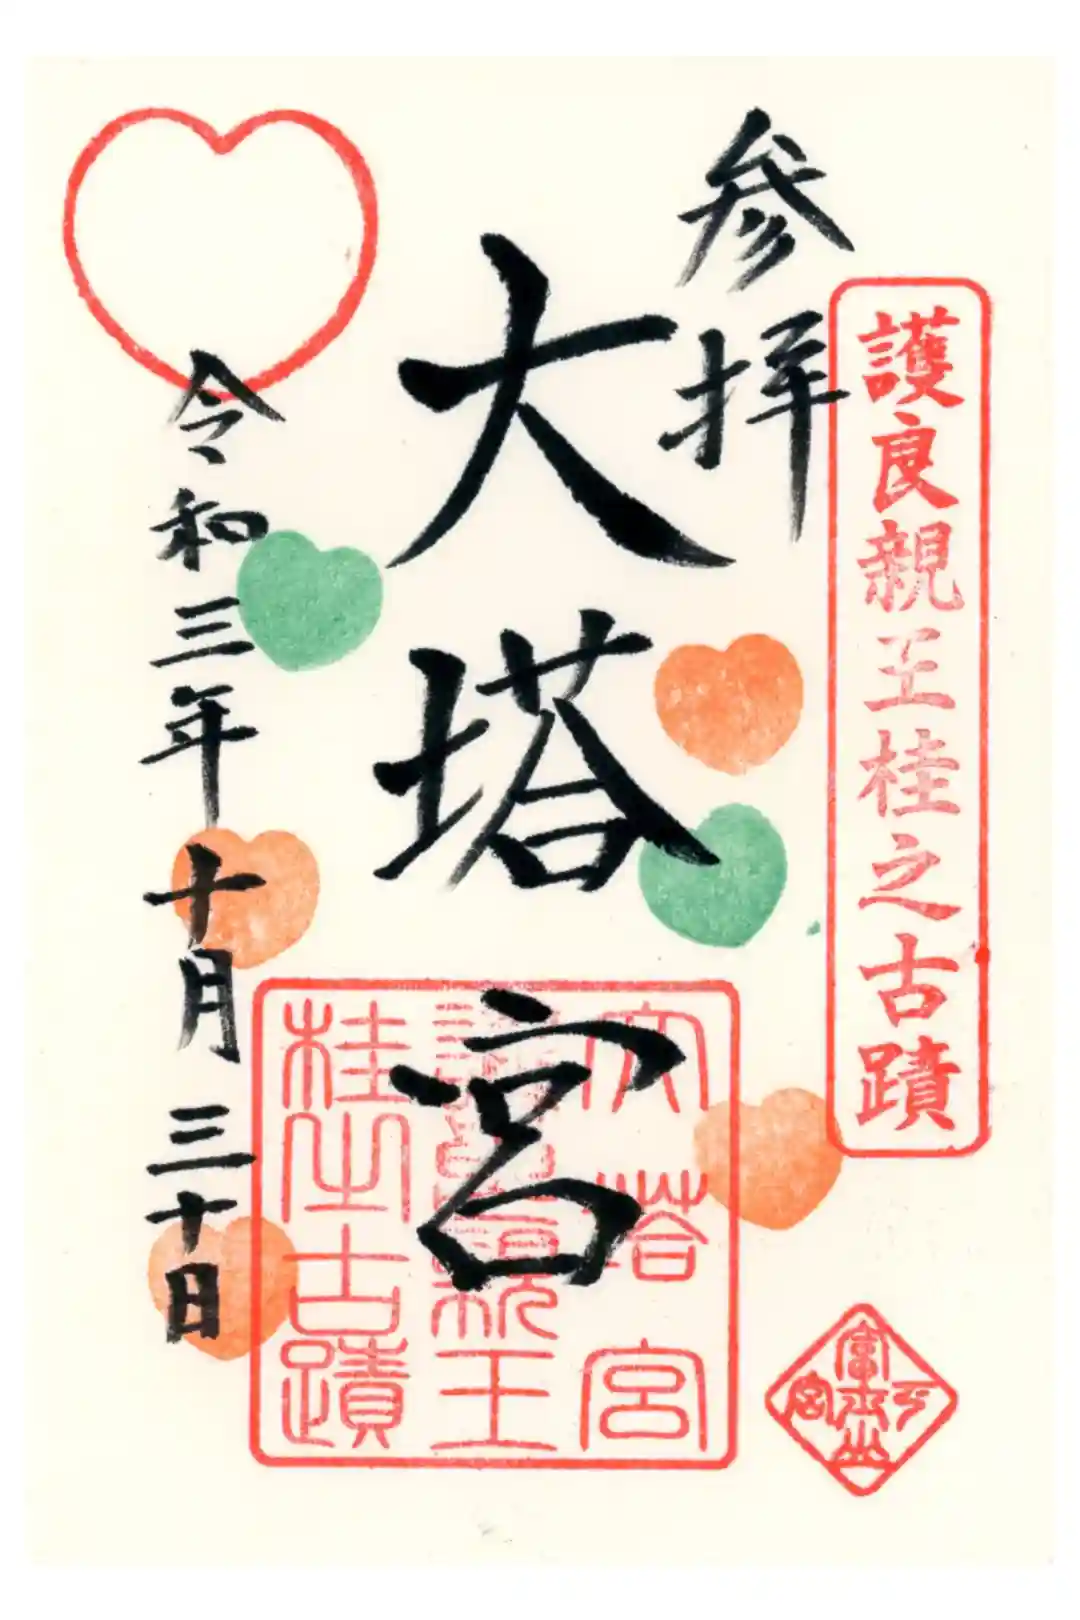 護良親王桂之古蹟
参拝
大塔宮
大塔宮
護良親王
桂之古蹟
令和三年十月三十日